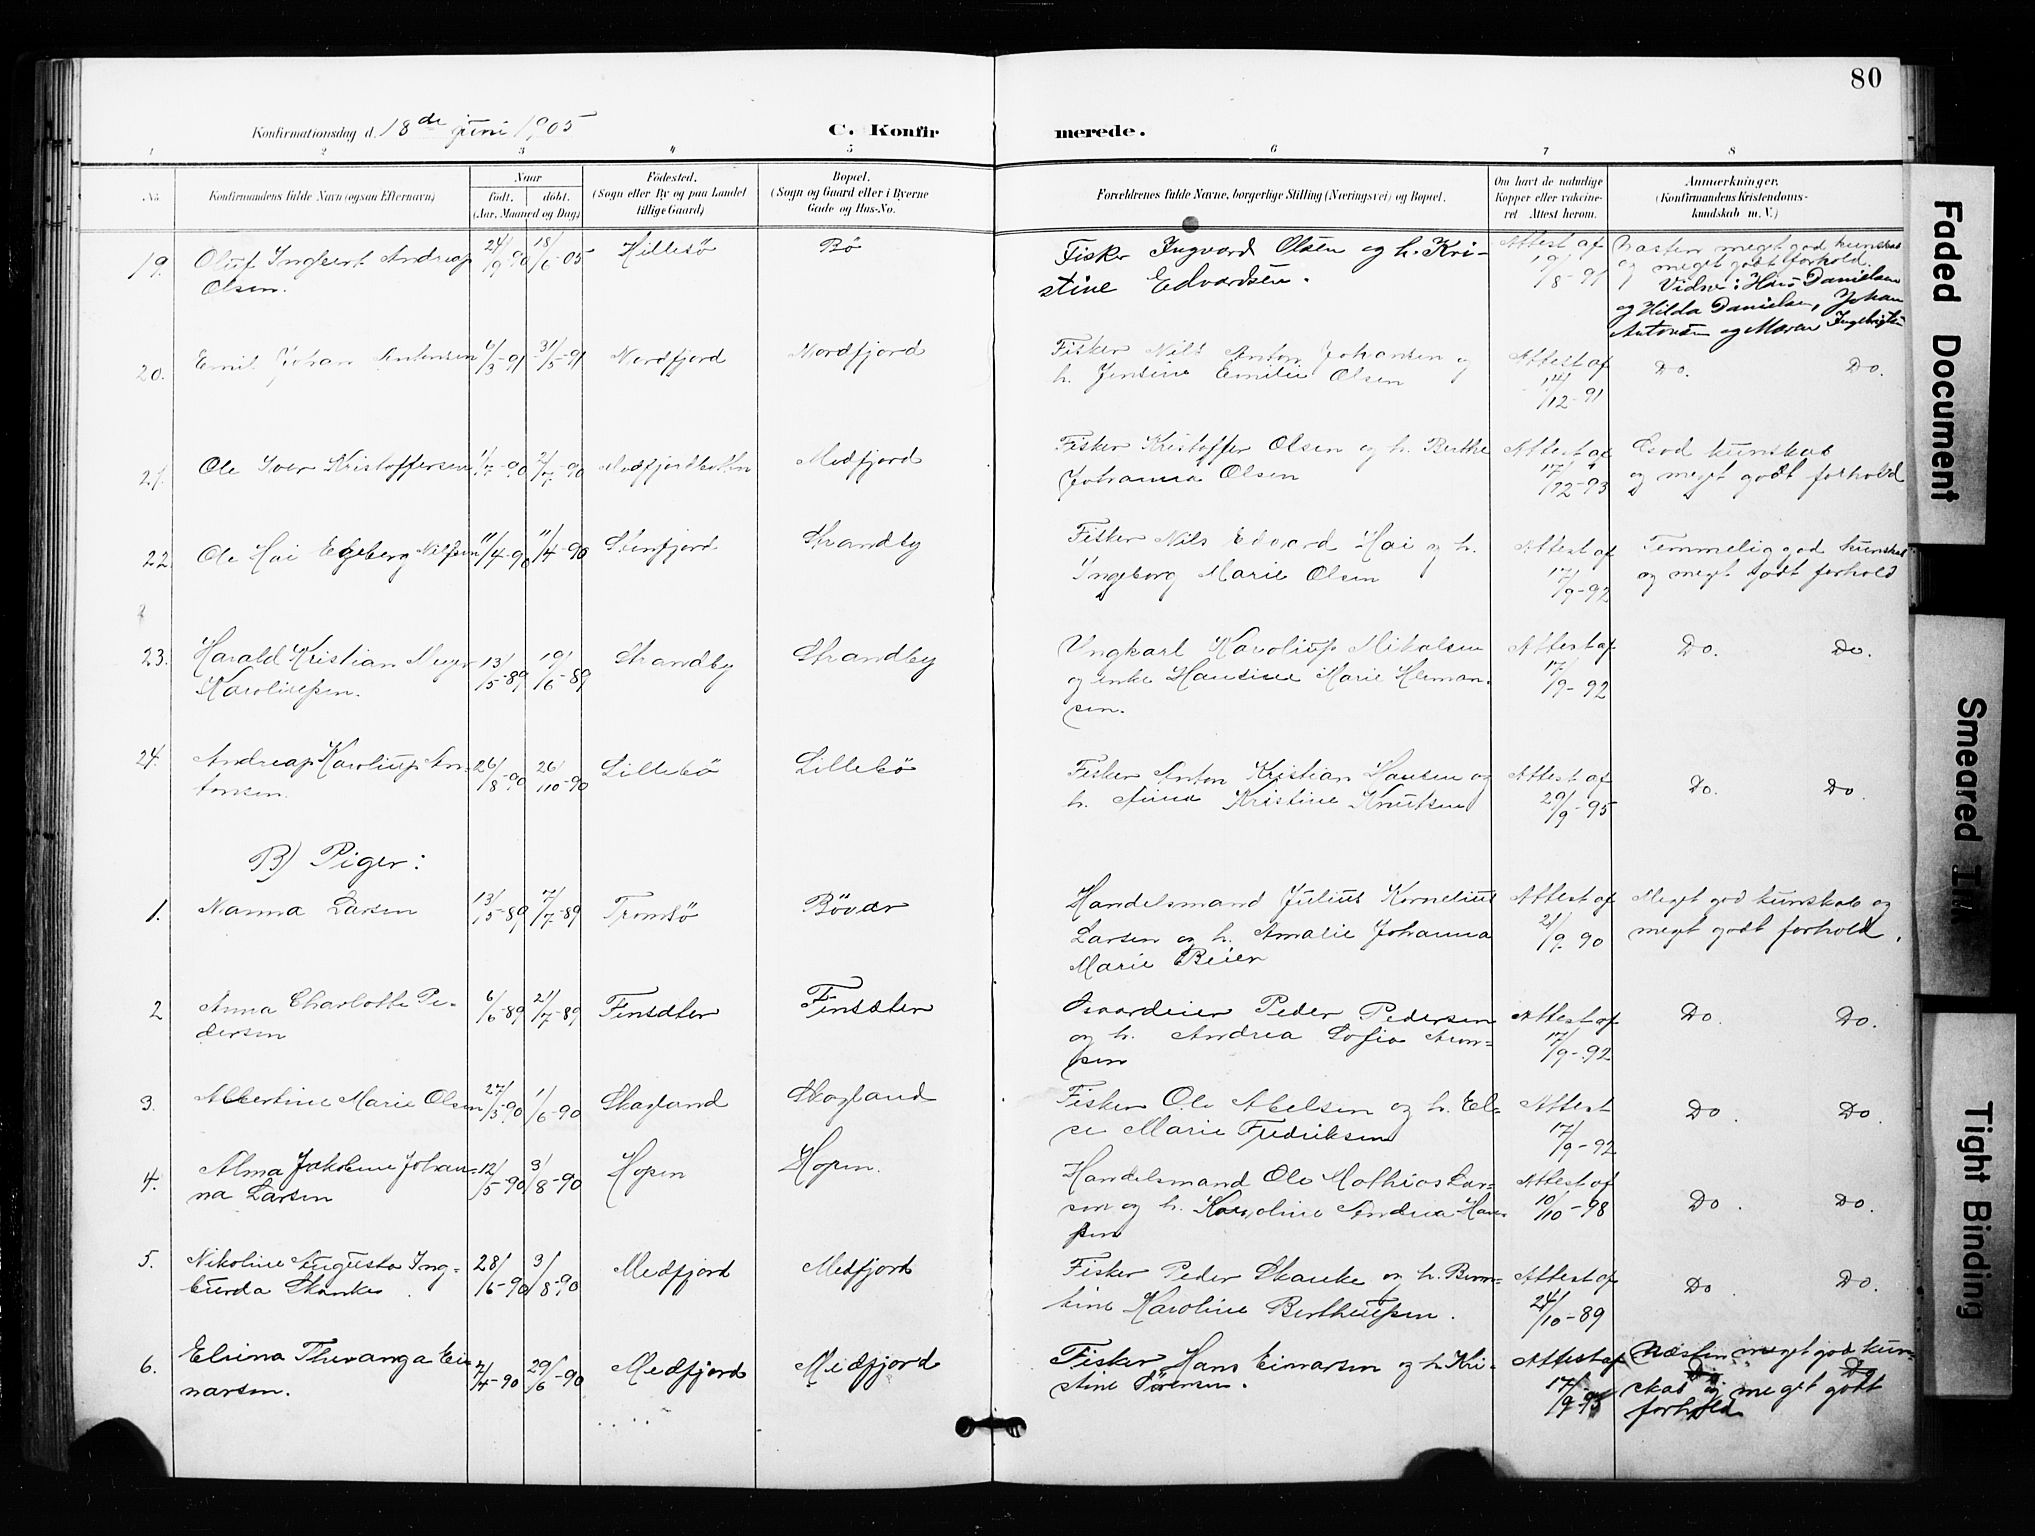 80
Konfirmationsdag d. 18de juni 1905
C. Konfir
merede.
1 2 3 4 5 6 7 8
No.
Konfirmandens fulde Navn (ogsaa Efternavn)
Naar
født. døbt.
(Aar, Maaned og Dag)
Fødested.
(Sogn eller By og paa Landet
tillige Gaard)
Bopæl.
(Sogn og Gaard eller i Byerne
Gade og Hus-No.
Forældrenes fulde Navne, borgerlige Stilling (Næringsvei) og Bopæl.
Om havt de naturlige
Kopper eller vaccine-
ret Attest herom.
Anmærkninger.
(Konfirmandens Kristendoms-
kundskab m. V.)
19. Oluf Ingbert Andreas 24/9 90 18/6-05 Hillesö Bö Fisker Ingvard Olsen og h. Kri- Attest af Næsten meget god kunskab
Olsen. stine Edvardsen. 19/8-91 og meget godt forhold.
Vidne: Hans Danielsen
og Hilda Danielsen, Johan
Antonsen og Maren Ingebrigtsen
20. Emil Johan Antonsen 4/3-91 31/5-91 Nordfjord Nordfjord Fisker Nils Anton Johansen og Attest af Do. Do.
h. Jensine Emilie Olsen 14/12-91
21. Ole Iver Kristoffersen 1/7-90 Medfjordbotn Medfjord Fisker Kristoffer Olsen og h. Berthe Attest af God kunskab
Johanna Olsen 17/12-93 og meget godt forhold
22. Ole Hai Egeberg Nilssen 11/4-90 11/4-90 Stenfjord Strandby Fisker Nils Edvard Hai og h. Attest af Temmelig god kunskab
Ingeborg Marie Olsen 17/9-92 og meget godt forhold
23. Harald Kristian Meyer 13/5-89 19/6-89 Strandby Strandby Ungkarl Karolius Nikolsen Attest af Do. Do.
Karoliussen. og enke Hansine Marie Heman- 17/9-92
sen.
24. Andreas Karolius An- 26/8-90 26/10-90 Lillebö Lillebö Fisker Anton Kristian Hansen og Attest af Do. Do
tonsen. h. Anna Kristine Knutsen 29/9-95
B) Piger:
1. Nanna Larsen 13/5-89 7/7-89 Tromsö Bövær Handelsmand Julius Kornelius Attest af Meget god kunskab og
Larsen og h. Amalie Johanna 21/9 90 meget godt forhold.
Marie Beier
2 Anna Charlotte Pe- 6/6-89 21/7-89 Finsæter Finsæter Gaardeier Peder Pedersen Attest af Do. Do.
dersen og h. Andrea Sofia Aron- 17/9-92
sen
3. Albertine Marie Olsen 27/3-90 1/6-90 Skagland Skagland Fisker Ole Abelsen og h. El- Attest Do. Do.
se Marie Fredriksen 17/9-92
4. Alma Jakobine Johan- 12/5-90 3/8-90 Hopen Hopen. Handelsmand Ole Mathias Lar- Attest af Do. Do.
na Larsen sen og h. Karoline Andrea Han 10/10-98
sen
5. Nikoline Augusta Ing- 28/6-90 3/8-90 Medfjord Medfjord Fisker Peder Skanke og h. Bern- Attest af Do Do.
burda Skanke. tine Karoline Bertheussen. 24/10-89
6. Elvina Thevanga Ei- 4/4-90 29/6-90 Medfjord Medfjord Fisker Hans Einarsen og h. Kri- Attest af Næsten meget god kun-
narsen. stine Sörensen. 17/9-93 skab og meget godt
forhold
Faded Document
Smeared Ink
Tight Binding